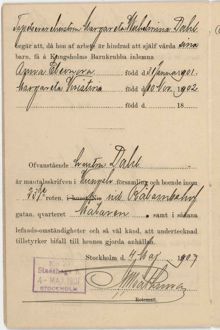 Tapetserarehustrun Margareta Wilhelmina Dahl
begär att, då hon af arbete är hindrad att själf vårda sina
barn, få å Kungsholms Barnkrubba inlemna
Anna Eleonora född d 31 Januari 1901.
Margareta Kristina född d 10 Nov. 1902
född d. 18
Ofvanstående hustru Dahl
är mantalsskrifven i församling och boende inom
roten, i huset N:o vid
gatan, qvarteret Mälaren samt i sådana
lefnads-omständigheter och så väl känd, att undertecknad
tillstyrker bifall till hennes gjorda anhållan.
Stockholm d 4 Maj 1907
4 - MAJ 1907
STOCKHOLM
Rotemast.